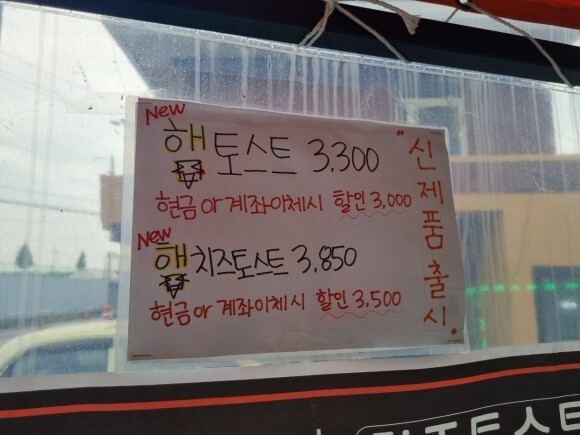 New
햄 토스트 3,300
현금 or 계좌이체시 할인 3,000
New
햄 치즈토스트 3,850
현금 or 계좌이체시 할인 3,500
"신제품출시"